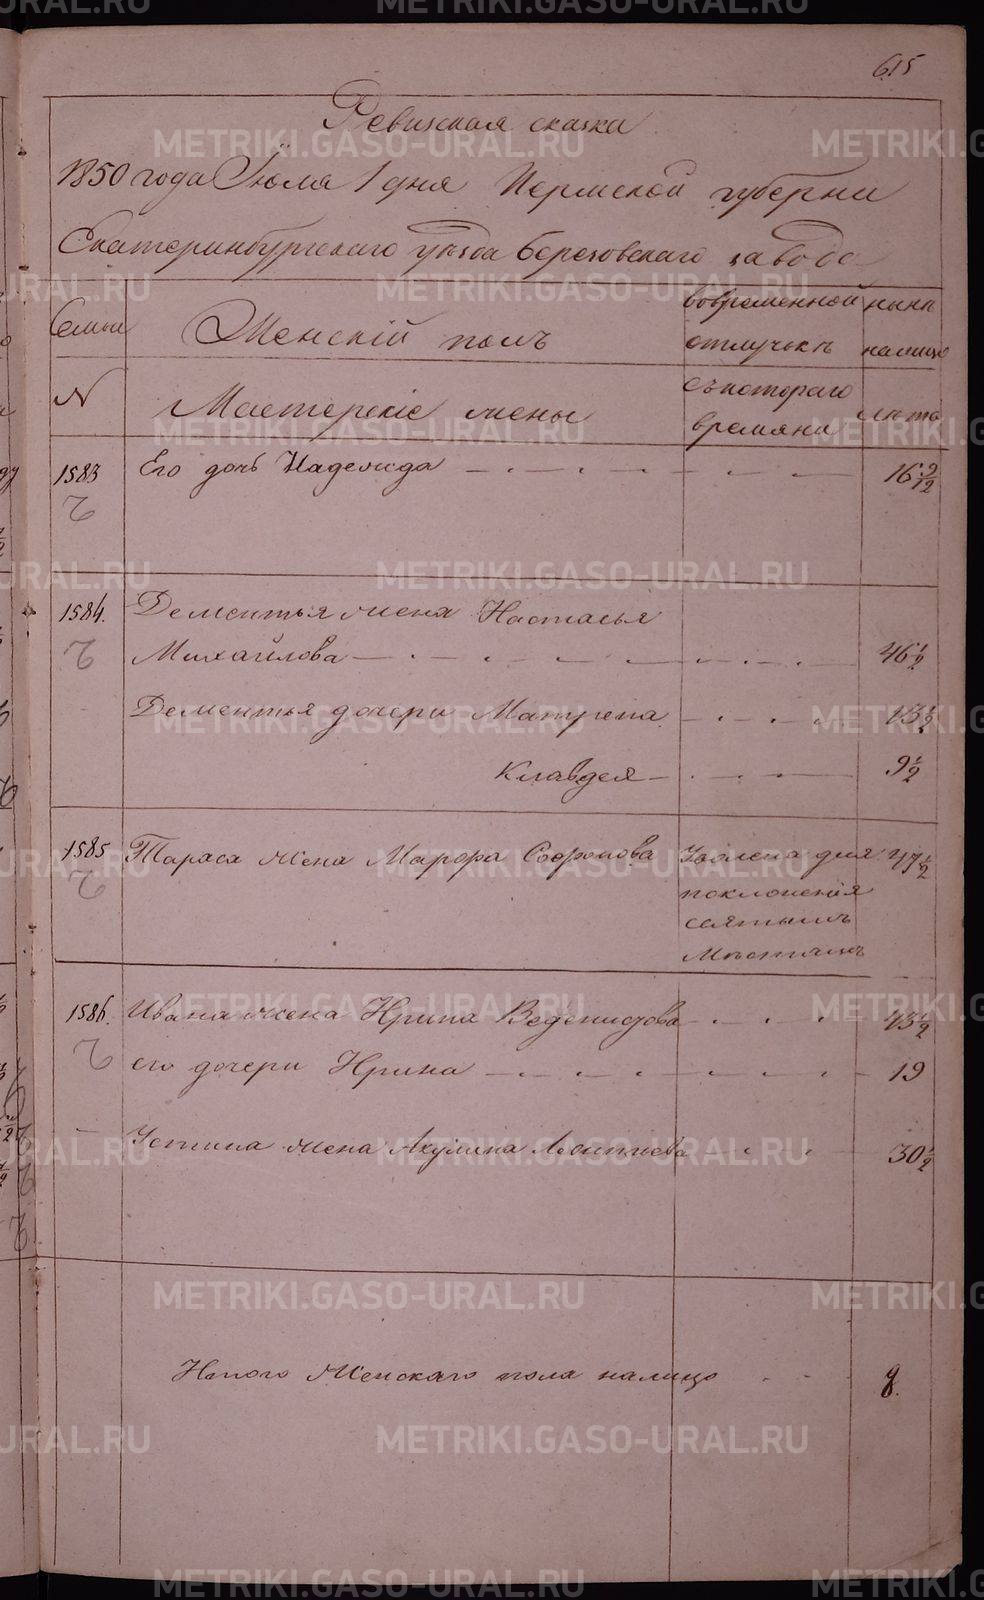 615
Ревизская сказка
1850 года Іюля 1 дня Пермской губерни
Екатеринбургскаго уѣзда Березовскаго завода
Семьи
Женскій полъ
вовременной отлучькѣ
нынѣ налицо
N
Мастерскіе жены
съкотораго времяни
лѣта
1583 Его дочь Надежда 16 9/12
1584. Дементья жена Настасья
Михайлова 46 1/2
Дементья дочери Матрена 13 1/2
Клавдея 9 1/2
1585 Тараса жена Марфра Софронова Уволена для 47 1/2
поклоненія
святымъ
мѣстамъ
1586. Ивана жена Ирина Веденихтова 43 1/2
его дочери Ирина 19
Устина жена Акулина Леонтиева 30 1/2
Итого Женскаго пола налицо 8.
METRIKI.GASO-URAL.RU